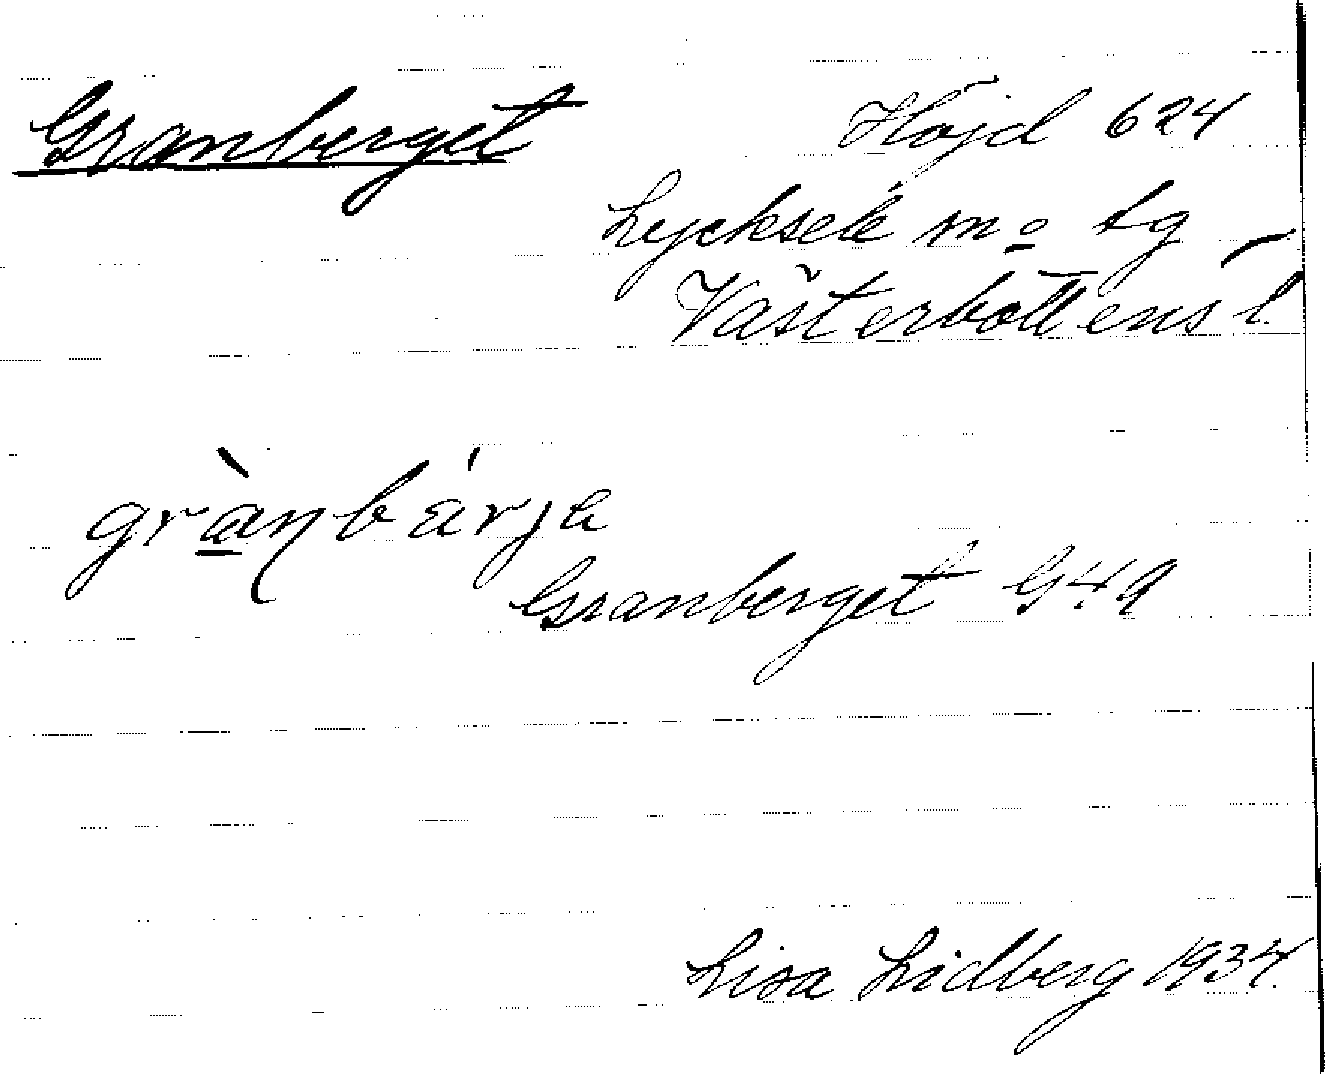 Granberget Höjd 624
Lycksele sn o tg
Västerbottens l.
grànbárja
Granberget G49
Lisa Lidberg 1934.